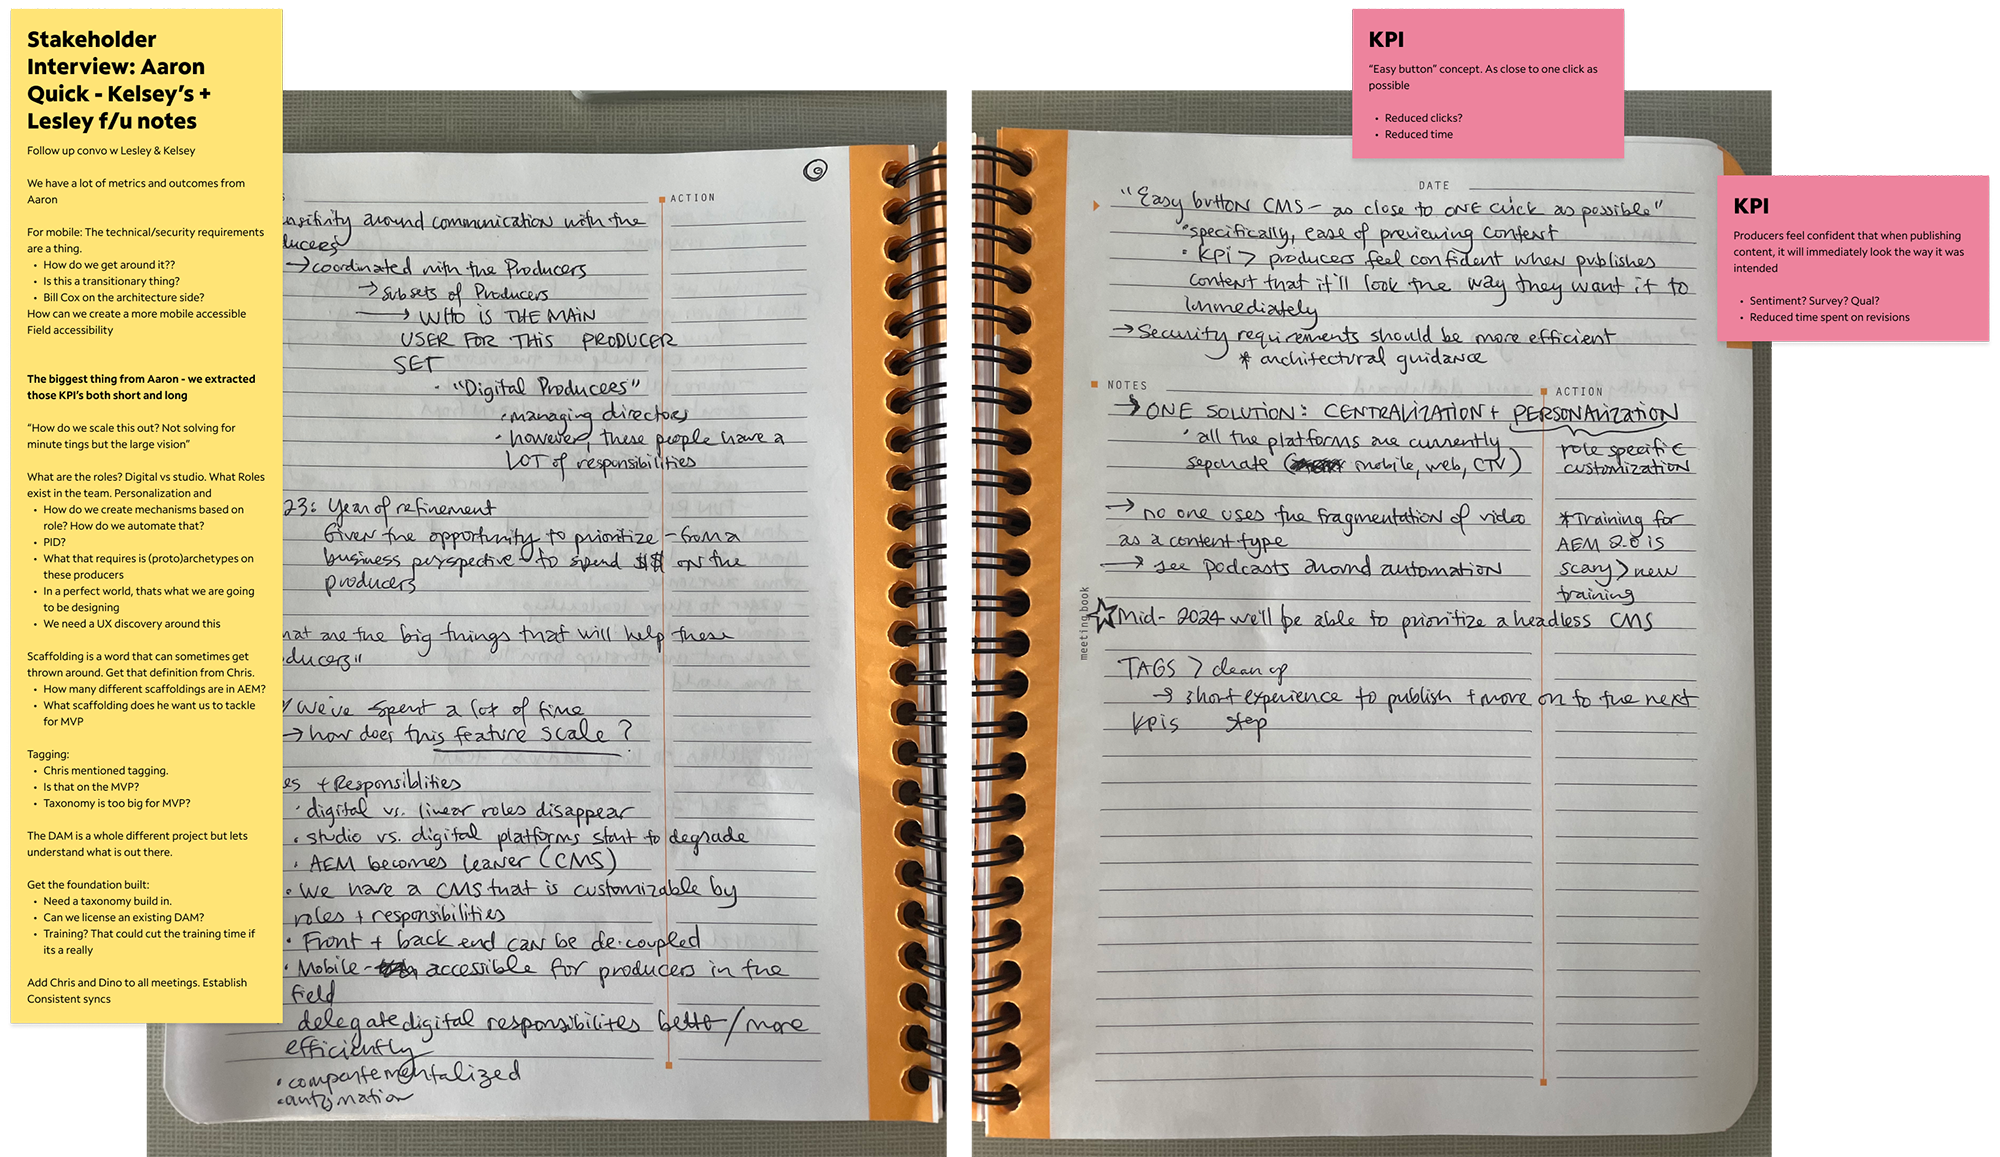 Stakeholder
Interview: Aaron
Quick - Kelsey's +
Lesley f/u notes
Follow up convo w Lesley & Kelsey
We have a lot of metrics and outcomes from
Aaron
For mobile: The technical/security requirements
are a thing.
• How do we get around it??
• Is this a transitionary thing?
• Bill Cox on the architecture side?
How can we create a more mobile accessible
Field accessibility
The biggest thing from Aaron - we extracted
those KPI's both short and long
"How do we scale this out? Not solving for
minute tings but the large vision"
What are the roles? Digital vs studio. What Roles
exist in the team. Personalization and
• How do we create mechanisms based on
role? How do we automate that?
• PID?
• What that requires is (proto)archetypes on
these producers
• In a perfect world, thats what we are going
to be designing
• We need a UX discovery around this
Scaffolding is a word that can sometimes get
thrown around. Get that definition from Chris.
• How many different scaffoldings are in AEM?
• What scaffolding does he want us to tackle
for MVP
Tagging:
• Chris mentioned tagging.
• Is that on the MVP?
• Taxonomy is too big for MVP?
The DAM is a whole different project but lets
understand what is out there.
Get the foundation built:
• Need a taxonomy build in.
• Can we license an existing DAM?
• Training? That could cut the training time if
its a really
Add Chris and Dino to all meetings. Establish
Consistent syncs
ACTION
nsitivity around communication with the
ducers
→ coordinated with the Producers
→ subsets of Producers
→ WHO IS THE MAIN
USER FOR THIS PRODUCER
SET
• "Digital Producers"
• managing directors
• however, these people have a
LOT of responsibilities
23: Year of refinement
Given the opportunity to prioritize - from a
business perspective - to spend $$ on the
producers
hat are the big things that will help these
ducers"
We've spent a lot of time
→ how does this feature scale?
es + Responsiblities
• digital vs. linear roles disappear
• studio vs. digital platforms start to degrade
• AEM becomes leaner (CMS)
• We have a CMS that is customizable by
roles + responsibilities
• Front + back end can be de-coupled
• Mobile - accessible for producers in the
field
delegate digital responsibilites / more
efficiently
• compartementalized
• automation
KPI
"Easy button" concept. As close to one click as
possible
• Reduced clicks?
• Reduced time
KPI
Producers feel confident that when publishing
content, it will immediately look the way it was
intended
• Sentiment? Survey? Qual?
• Reduced time spent on revisions
DATE
"Easy button CMS - as close to ONE click as possible"
• specifically, ease of previewing content
• KPI > producers feel confident when publishes
content that it'll look the way they want it to
immediately
→ Security requirements should be more efficient
* architectural guidance
NOTES
ACTION
→ ONE SOLUTION: CENTRALIZATION + PERSONALIZATION
• all the platforms are currently
separate ( mobile, web, CTV)
role specific
customization
→ no one uses the fragmentation of video
as a content type
→ see podcasts around automation
*Training for
AEM 2.0 is
scary > new
training
meeting book
☆ Mid- 2024 we'll be able to prioritize a headless CMS
TAGS > clean up
→ short experience to publish + move on to the next
step
KPIs